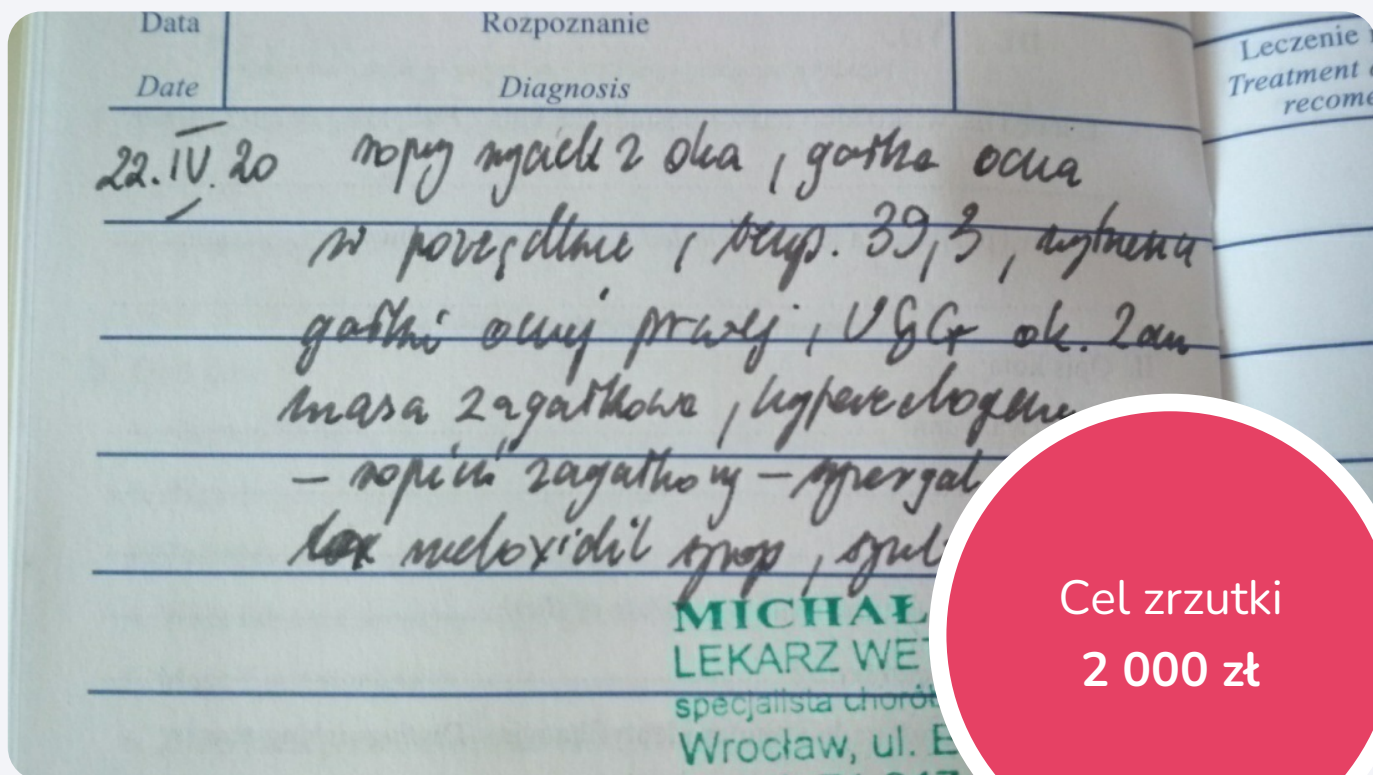 Data Rozpoznanie
Leczenie
Date Diagnosis
Treatment
recome
22.IV.20 ropny wyciek z oka, gałka oczna
w porządku, temp. 39,3, wytrzeszcz
gałki ocznej prawej, USG ok. 2cm
masa zagałkowa, hyperechogen
– ropień zagałkowy –
meloxidil syrop,
MICHAŁ
LEKARZ WET
specjalista chorób
Wrocław, ul. E
Cel zrzutki
2 000 zł